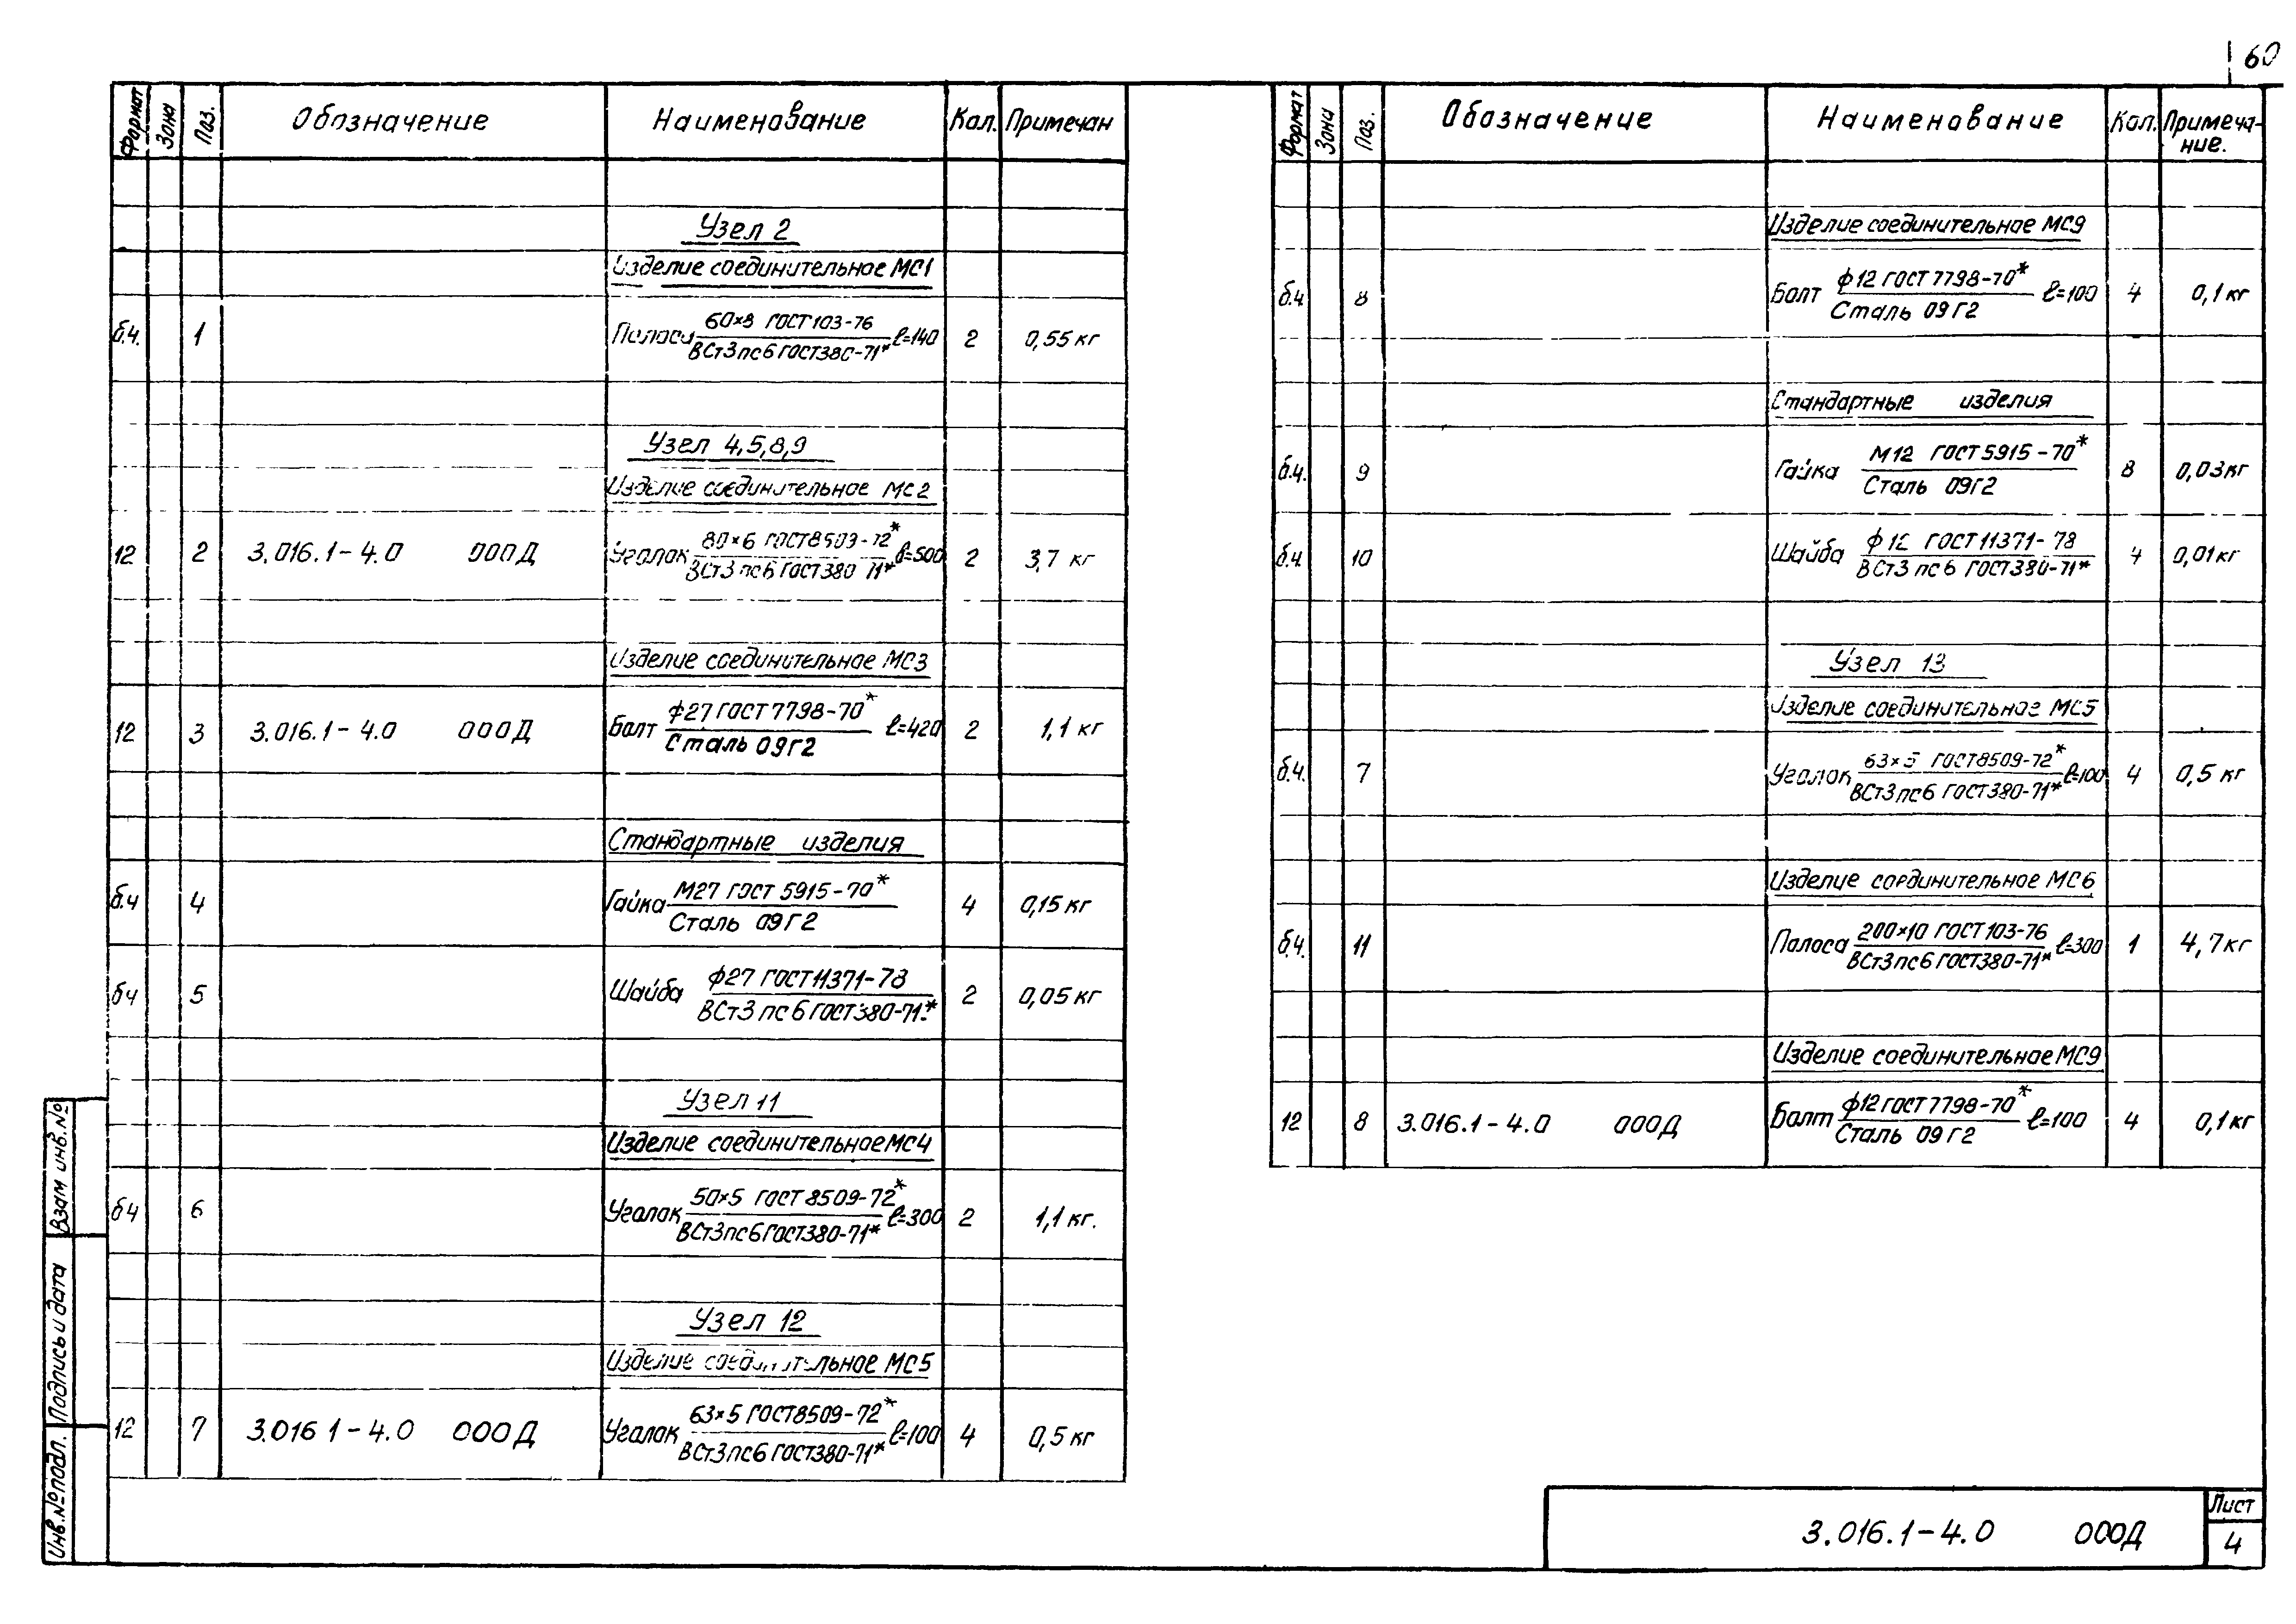 60
Формат Зона Поз. Обозначение Наименование Кол. Примечан
Узел 2
Изделие соединительное МС1
б.ч. 1 Полоса 60×8 ГОСТ 103-76 / ВСт3пс6 ГОСТ380-71* ℓ=140 2 0,55 кг
Узел 4,5,8,9
Изделие соединительное МС2
12 2 3.016.1-4.0 000Д Уголок 80×6 ГОСТ8509-72* / ВСт3пс6 ГОСТ380-71* ℓ=500 2 3,7 кг
Изделие соединительное МС3
12 3 3.016.1-4.0 000Д Болт ф27 ГОСТ 7798-70* / Сталь 09Г2 ℓ=420 2 1,1 кг
Стандартные изделия
б.ч 4 Гайка М27 ГОСТ 5915-70* / Сталь 09Г2 4 0,15 кг
бч 5 Шайба ф27 ГОСТ11371-78 / ВСт3пс6 ГОСТ380-71* 2 0,05 кг
Узел 11
Изделие соединительное МС4
бч 6 Уголок 50×5 ГОСТ 8509-72* / ВСт3пс6 ГОСТ380-71* ℓ=300 2 1,1 кг.
Узел 12
Изделие соединительное МС5
12 7 3.016 1-4.0 000Д Уголок 63×5 ГОСТ8509-72* / ВСт3пс6 ГОСТ380-71* ℓ=100 4 0,5 кг
Формат Зона Поз. Обозначение Наименование Кол. Примеча-
ние.
Изделие соединительное МС9
б.ч 8 Болт ф12 ГОСТ 7798-70* / Сталь 09Г2 ℓ=100 4 0,1 кг
Стандартные изделия
б.ч. 9 Гайка М12 ГОСТ 5915-70* / Сталь 09Г2 8 0,03кг
б.ч. 10 Шайба ф12 ГОСТ 11371-78 / ВСт3 пс6 ГОСТ380-71* 4 0,01кг
Узел 13
Изделие соединительное МС5
б.ч. 7 Уголок 63×5 ГОСТ8509-72* / ВСт3пс6 ГОСТ380-71* ℓ=100 4 0,5 кг
Изделие соединительное МС6
б.ч. 11 Полоса 200×10 ГОСТ 103-76 / ВСт3пс6 ГОСТ380-71* ℓ=300 1 4,7кг
Изделие соединительное МС9
12 8 3.016.1-4.0 000Д Болт ф12 ГОСТ 7798-70* / Сталь 09Г2 ℓ=100 4 0,1кг
Инв.№подл. Подпись и дата Взам инв.№
3.016.1-4.0 000Д
Лист
4